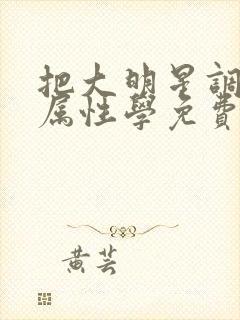 把大明星調
属性學免費
黄芸